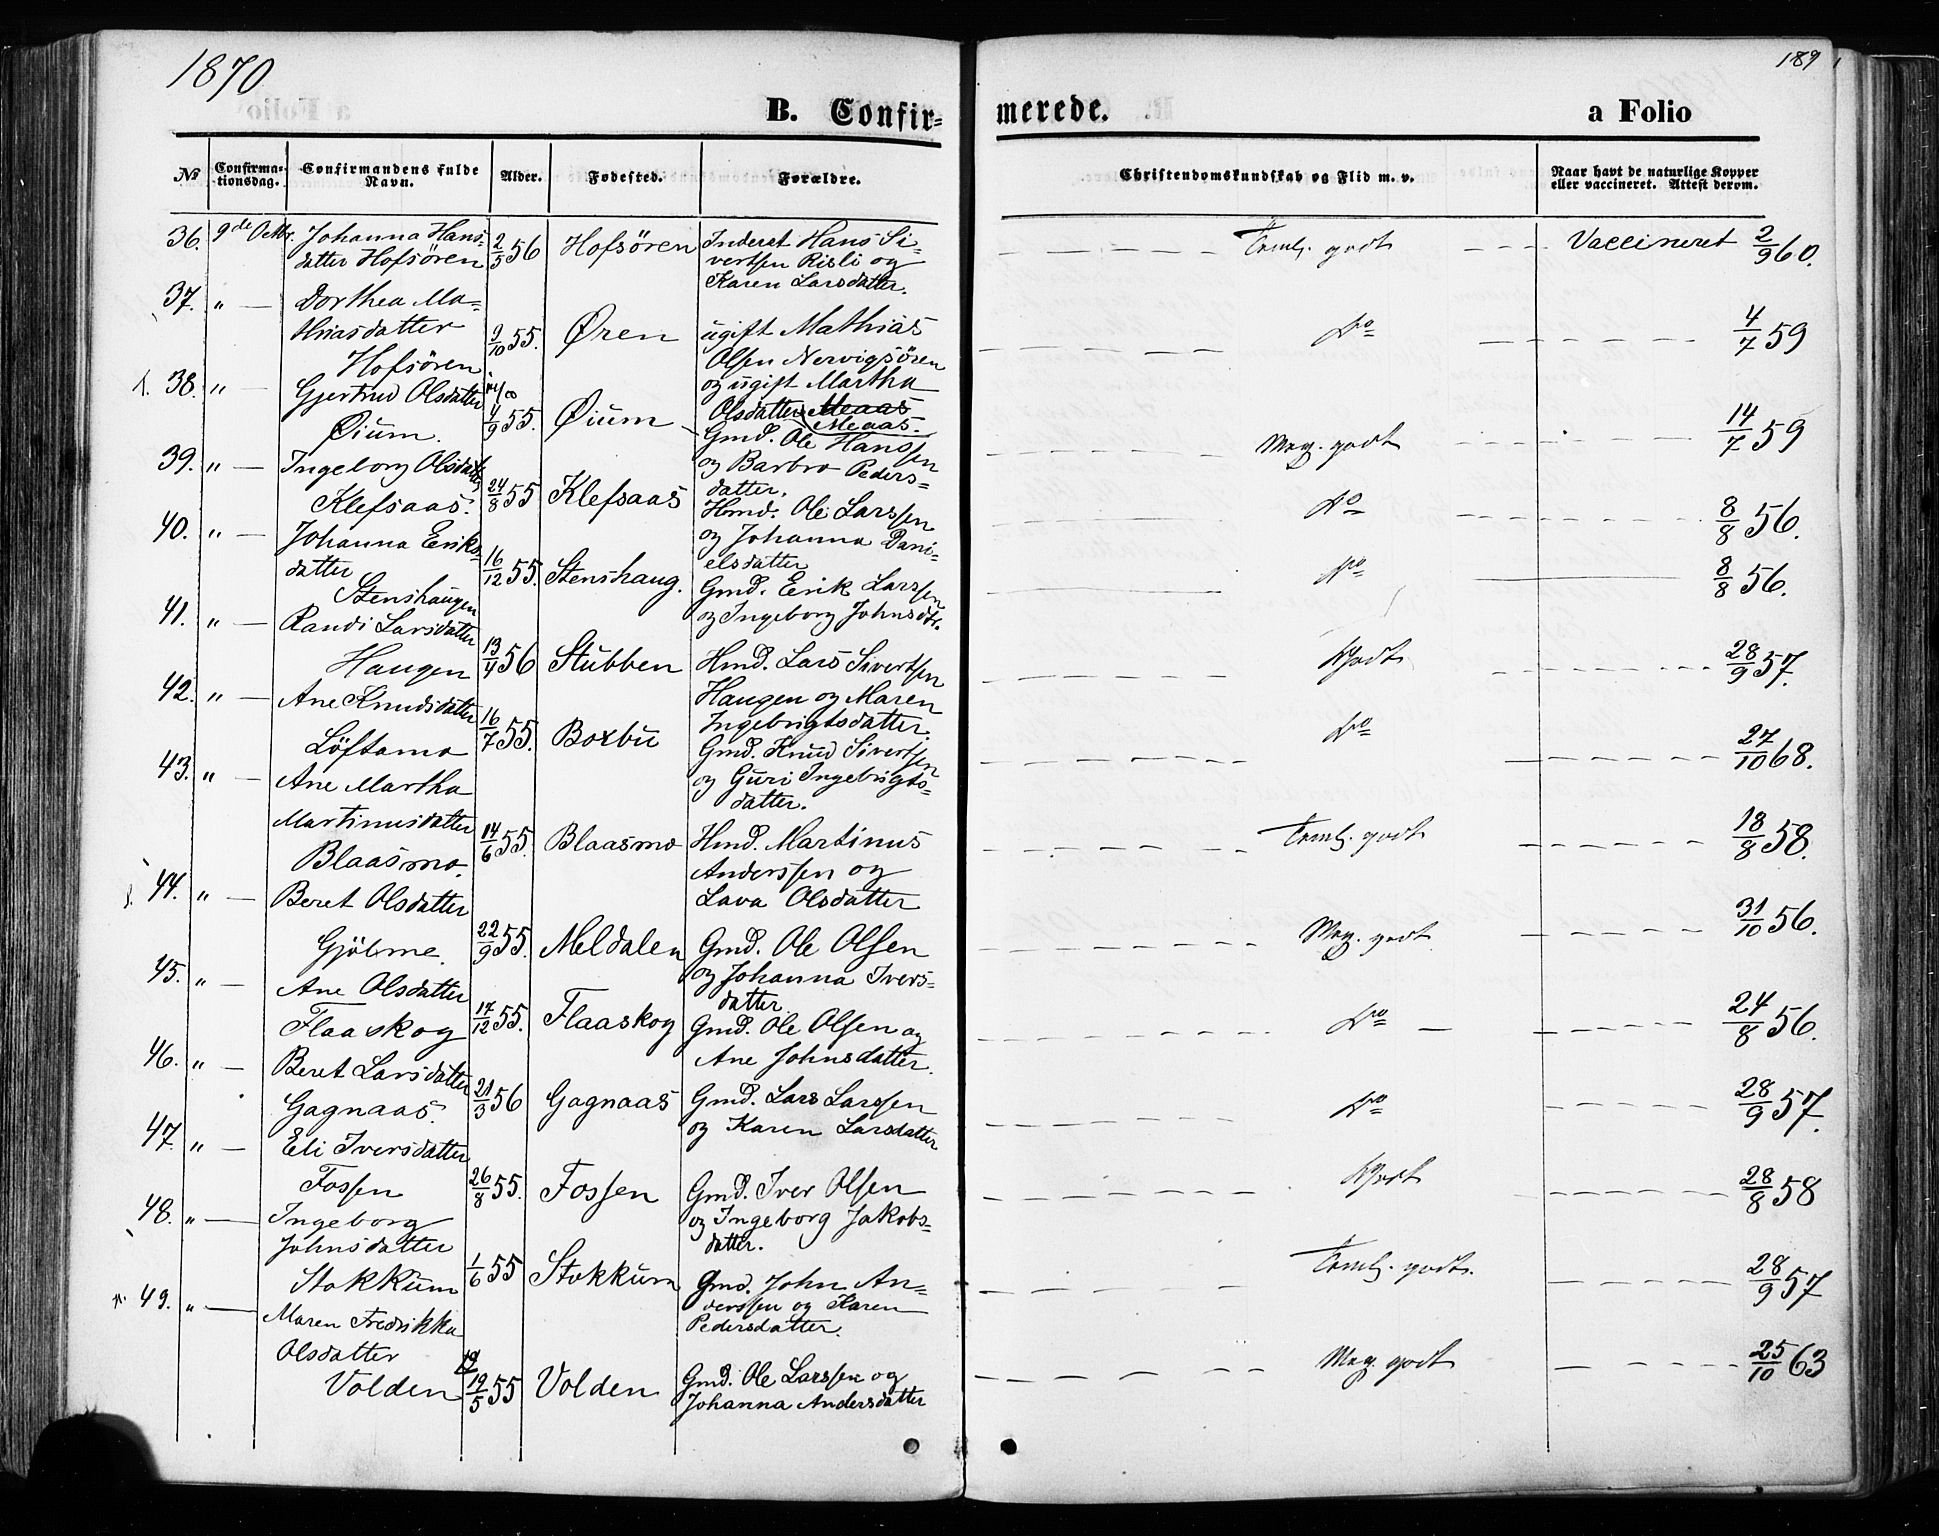 1870
189
B. Confir-
merede.
a Folio
No
Confirma-
tionsdag.
Confirmandens fulde
Navn.
Alder.
Fødested.
Forældre.
Christendomskundskab og Flid m. v.
Naar havt de naturlige Kopper
eller vaccineret. Attest derom.
36. 9de Octbr. Johanna Hans-
datter Hofsören
2/5 56 Hofsören
Inderst Hans Si-
vertsen Risli og
Karen Larsdatter.
Temlig godt
Vaccineret 2/9 60.
37. " — Dorthea Ma-
thiasdatter
Hofsören
9/10 55. Øren
ugift Mathias
Olsen Nervigsören
og ugift Martha
Olsdatter Meaas
Meaas.
do
4/7 59
38. " — Gjertrud Olsdatter
Øium.
4/9 55. Øium
Gmd. Ole Hanssen
og Barbro Peders-
datter.
Meg. godt
14/7 59
39. " — Ingeborg Olsdatter
Klefsaas.
24/8 55 Klefsaas
Hmd. Ole Larssen
og Johanna Dani-
elsdatter
do
8/8 56.
40. " — Johanna Eriks-
datter
Stenshaugen
16/12 55. Stenshaug.
Gmd. Erik Larssen
og Ingeborg Johnsdtr.
do
8/8 56.
41. " — Randi Larsdatter
Haugen
13/4 56 Stubben
Hmd. Lars Sivertsen
Haugen og Maren
Ingebrigtsdatter.
Godt
28/9 57.
42. " — Ane Knudsdatter
Löftamo
16/7 55. Boxbu
Gmd. Knud Sivertsen
og Guri Ingebrigts-
datter.
do
27/10 68.
43. " — Ane Martha
Martinusdatter
Blaasmo.
14/6 55. Blaasmo
Hmd. Martinus
Anderssen og
Lava Olsdatter
Temlig godt
18/8 58.
44. " — Beret Olsdatter
Gjölme.
22/9 55. Meldalen
Gmd. Ole Olsen
og Johanna Ivers-
datter
Meg. godt
31/10 56.
45. " — Ane Olsdatter
Flaaskog
17/12 55. Flaaskog
Gmd. Ole Olsen og
Ane Johnsdatter.
do
24/8 56.
46. " Beret Larsdatter
Gagnaas.
21/3 56 Gagnaas
Gmd. Lars Larssen
og Karen Larsdatter
do
28/9 57.
47. " — Eli Iversdatter
Fossen
26/8 55. Fossen
Gmd. Iver Olsen
og Ingeborg Jakobs-
datter.
Godt
28/8 58
48. " — Ingeborg
Johnsdatter
Stokkum
1/6 55 Stokkum
Gmd. John An-
derssen og Karen
Pedersdatter.
Temlig godt.
28/9 57
49. " — Maren Fredrikka
Olsdatter
Volden
19/5 55 Volden
Gmd. Ole Larssen og
Johanna Andersdatter
Meg. godt
25/10 63